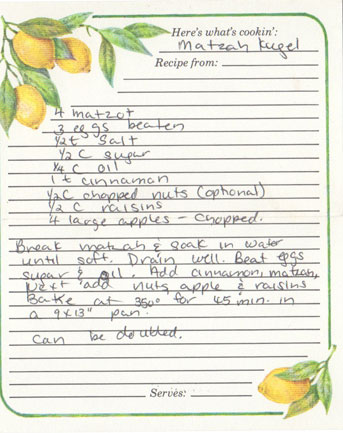 Here's what's cookin':
Matzah Kugel
Recipe from:
4 matzot
3 eggs beaten
1/2 t salt
1/2 C sugar
1/4 C oil
1 t cinnamon
1/2 C chopped nuts (optional)
1/2 C raisins
4 large apples - chopped.
Break matzah & soak in water
until soft. Drain well. Beat eggs
sugar & oil. Add cinnamon, matzah,
Next add nuts, apple & raisins
Bake at 350° for 45 min. in
a 9x13" pan.
Can be doubled.
Serves: